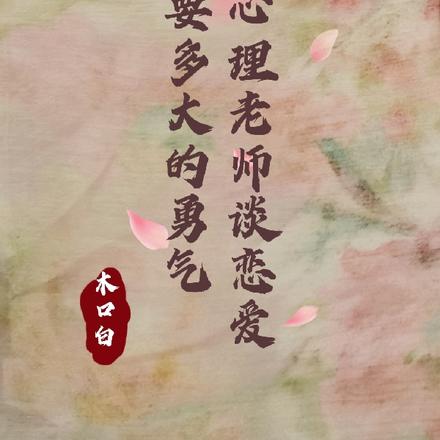 心理老师谈恋爱
要多大的勇气
木口白